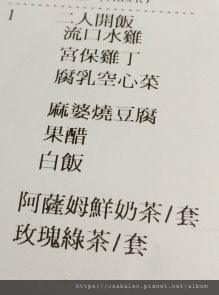 1 二人開飯
流口水雞
宮保雞丁
腐乳空心菜
麻婆燒豆腐
果醋
白飯
阿薩姆鮮奶茶/套
玫瑰綠茶/套
https://osakaleo.pixnet.net/album